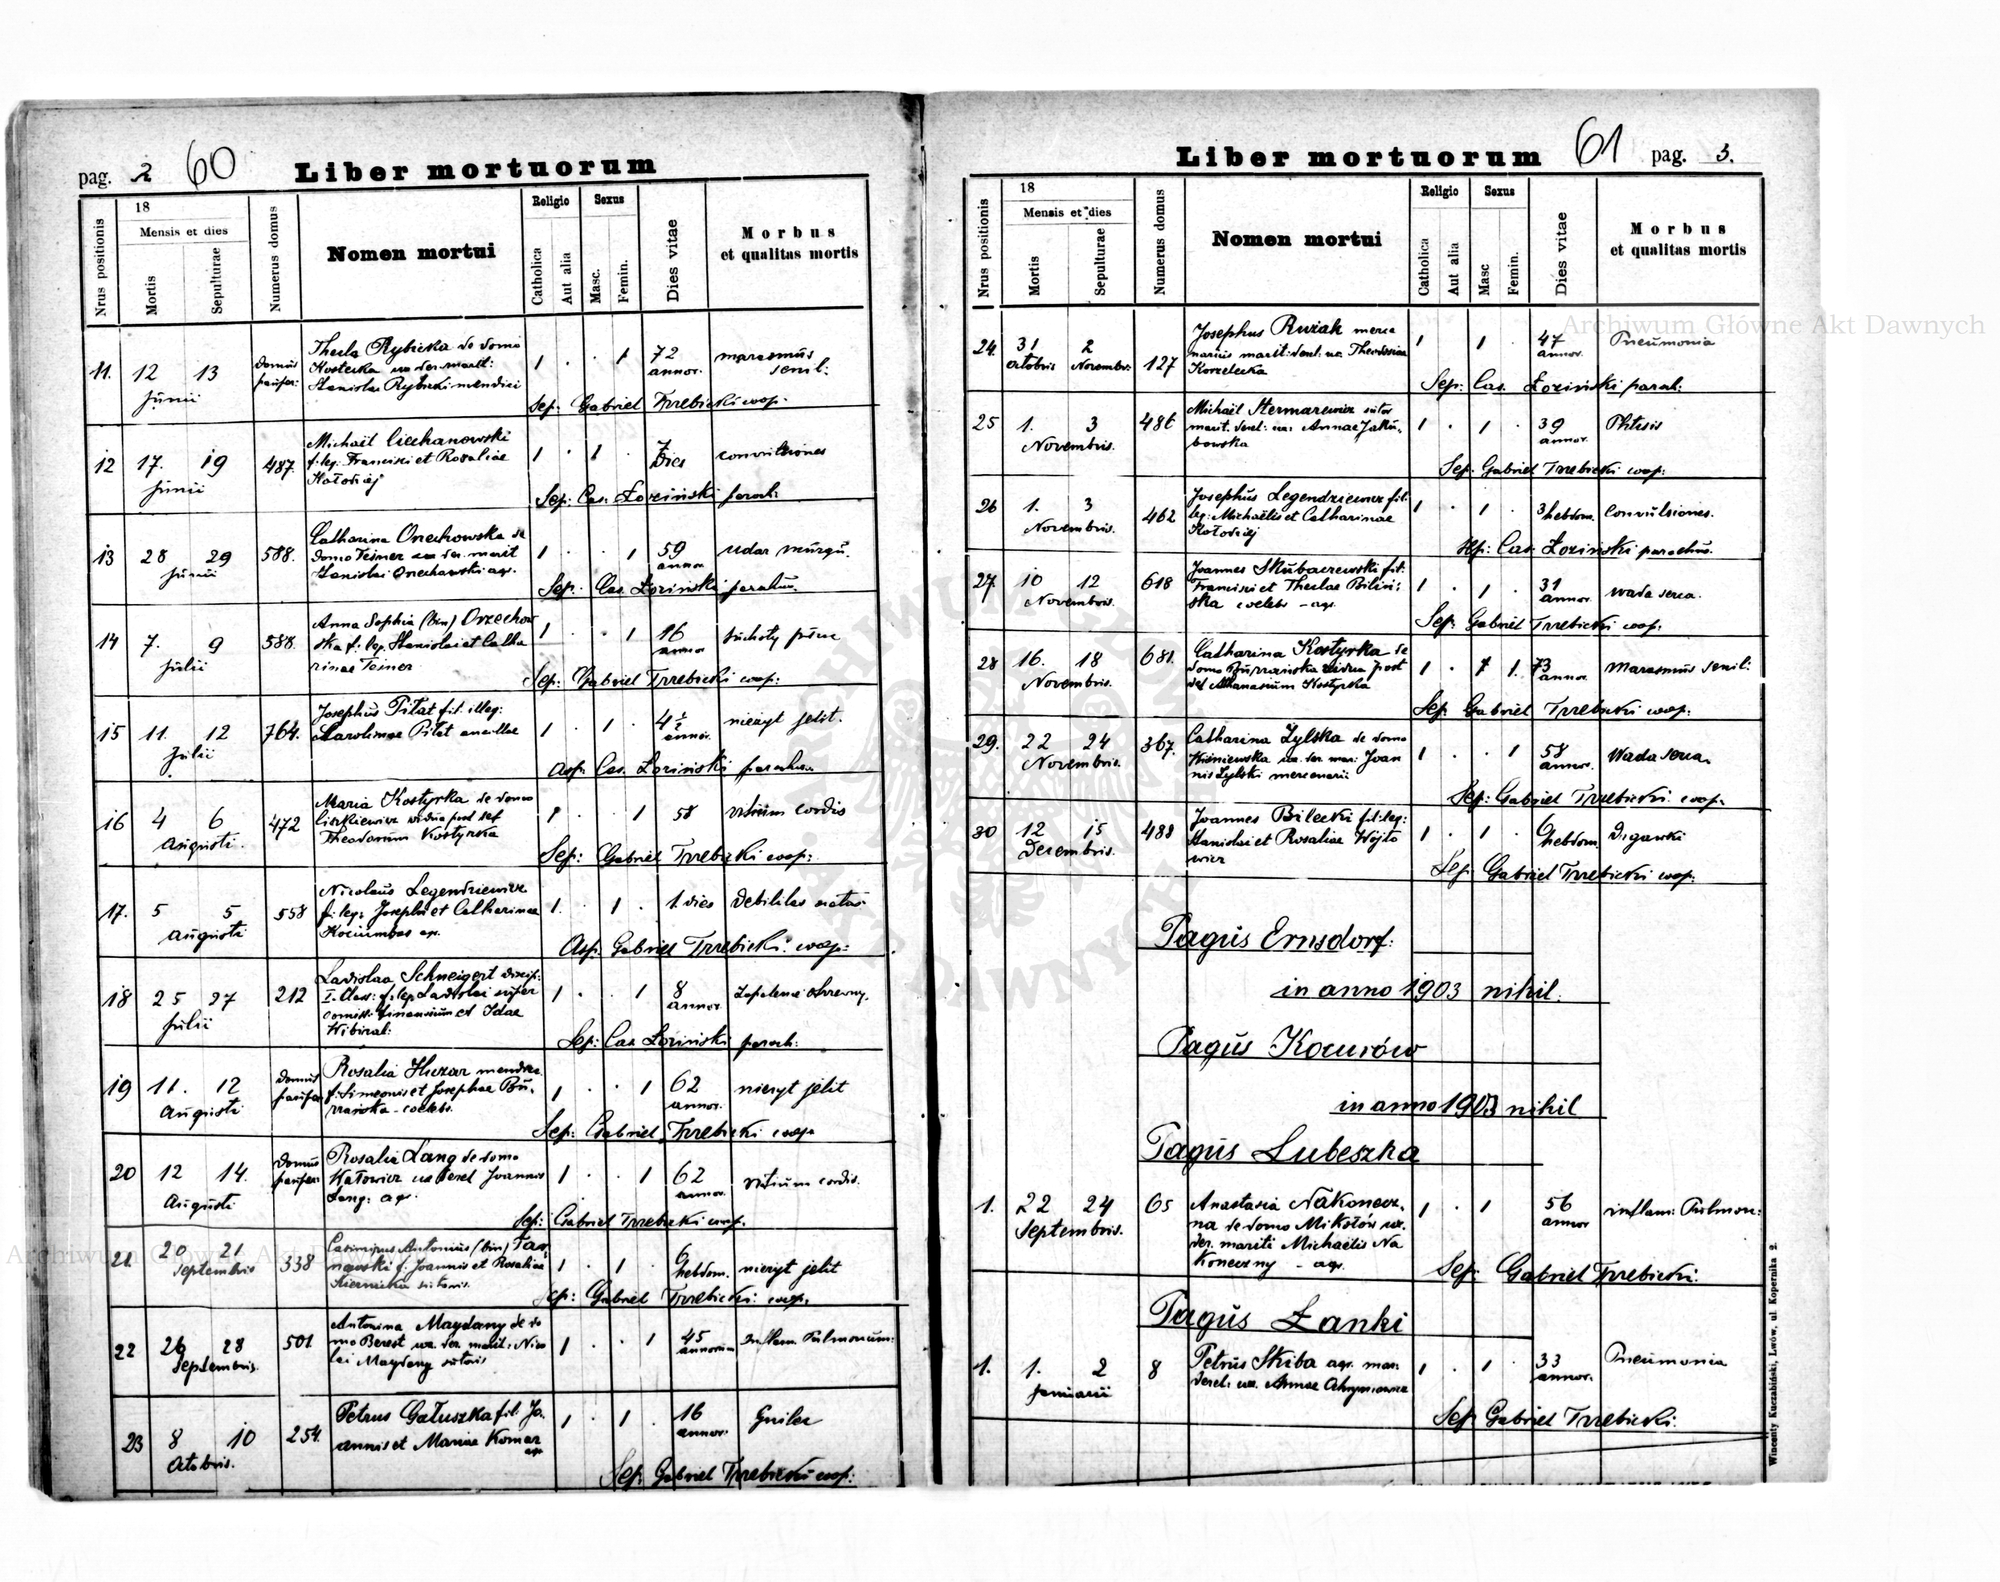 pag. 2 60 Liber mortuorum
Nrus positionis
18
Mensis et dies
Mortis
Sepulturae
Numerus domus
Nomen mortui
Religio
Catholica
Aut alia
Sexus
Masc.
Femin.
Dies vitae
Morbus
et qualitas mortis
11. 12 13 Junii domus pauper:
Thecla Rybicka de domo
Kostecka ux der. marit:
Stanislai Rybicki mendici
1 . . 1 72 annor. marasmus senil:
Sep: Gabriel Trzebicki coop.
12 17. 19 Junii 487.
Michaël Ciechanowski
f. leg. Francisci et Rosaliae
Kołodziej
1 . 1 . 7 Dies convulsiones
Sep: Cas. Łoziński paroch:
13 28 29 Junii 588.
Catharina Orzechowska de
domo Teiner ux der. marit
Stanislai Orzechowski agr.
1 . . 1 59 annor udar mózgu.
Sep. Cas. Łoziński parochus.
14 7. 9 Julii 588.
Anna Sophia (bin) Orzechow
ska f. leg. Stanislai et Catha
rinae Teiner
1 . . 1 16 annor suchoty płuc
Sep: Gabriel Trzebicki coop:
15 11. 12 Julii 764.
Josephus Pitat fil. illeg:
Carolinae Pitat ancillae
1 . 1 . 4 1/2 annor. nieżyt jelit.
Asp: Cas. Łoziński parochus
16 4 6 Augusti. 472
Maria Kostyrka de domo
Ciszkiewicz vidua post def
Theodorum Kostyrka
1 . . 1 58 vitium cordis
Sep: Gabriel Trzebicki coop:
17. 5 5 Augusti 558
Nicolaus Legendziewicz
f. leg: Josephi et Catharinae
Kociumbas agr.
1. . 1 . 1. dies Debilitas natus
Asp: Gabriel Trzebicki. coop:
18 25 27 Julii 212
Ladislaa Schneigert discip:
I. Class: f. leg Ladislai super
comiss. finansium et Idae
Wibiral:
1 . . 1 8 annor. Zapalenie otrzewny.
Sep: Cas Łoziński paroch:
19 11. 12 Augusti domus pauper
Rosalia Huzar mendica
f. Simeonis et Josephae Bu-
rzańska - coelebs.
1 . . 1 62 annor. nieżyt jelit
Sep: Gabriel Trzebicki coop
20 12 14. Augusti domus pauper:
Rosalia Lang de domo
Katowicz ux derel Joannis
Lang: agr.
1 . . 1 62 annor. vitium cordis.
Sep: Gabriel Trzebicki coop.
21. 20 21 Septembris 338
Casimirus Antonius (bin) Tar,
nawski f. Joannis et Rosaliae
Siernicka sutoris.
1 . 1 . 6 hebdom. nieżyt jelit
Sep: Gabriel Trzebicki: coop.
22 26 28 Septembris. 501
Antonina Magdany de do
mo Berest ux. der. marit: Nico
lai Magdany sutoris
1 . . 1 45 annorum Inflam. Pulmonum:
23 8 10 Octobris. 254.
Petrus Gałuszka fil. Jo.
annis et Mariae Komar
agr
1 . 1 . 16 annor. Gruźlca
Sep: Gabriel Trzebicki coop:
Liber mortuorum 61 pag. 3.
Nrus positionis
18
Mensis et dies
Mortis
Sepulturae
Numerus domus
Nomen mortui
Religio
Catholica
Aut alia
Sexus
Masc
Femin.
Dies vitae
Morbus
et qualitas mortis
24. 31 Octobris 2 Novembr: 127
Josephus Rużak merce
narius marit. derel. ux Theodosiae
Korzelecka
1 1 . 47 annor. Pneumonia
Sep: Cas. Łoziński paroch:
25 1. 3 Novembris. 486
Michaël Stermarewicz sutor
marit. derel: ux: Annae Jaku,
bowska
1 . 1 . 39 annor. Phtisis
Sep. Gabriel Trzebicki coop:
26 1. 3 Novembris. 462
Josephus Legendziewicz fil.
leg. Michaëlis et Catharinae
Kołodziej
1 . 1 . 3 hebdom. Convulsiones.
Sep: Cas. Łoziński parochus.
27. 10 12 Novembris. 618
Joannes Skubaczewski fil:
Francisci et Theclae Biliń,
ska coelebs - agr.
1 . 1 . 31 annor. wada serca.
Sep: Gabriel Trzebicki coop.
28 16. 18 Novembris. 681.
Catharina Kostyrka de
domo Burzańska vidua post
def Athanasium Kostyrka
1 . 1 1. 73 annor. Marasmus senil:
Sep. Gabriel Trzebicki coop:
29. 22 24 Novembris. 367.
Catharina Zylska de domo
Wiśniewska ux. der. mar: Joan
nis Zylski mercenarii
1 . . 1 58 annor. Wada serca.
Sep: Gabriel Trzebicki. coop.
30 12 15 Decembris. 488
Joannes Bilecki fil: leg:
Stanislai et Rosaliae Wojto
wicz
1 . 1 . 6 hebdom. Drgawki
Sep. Gabriel Trzebicki coop:
Pagus Ernsdorf:
in anno 1903 nihil.
Pagus Kocurów
in anno 1903 nihil
Pagus Lubeszka
1. 22 24 Septembris. 65
Anastasia Nakonecz,
na de domo Mikołów ux.
der. mariti Michaëlis Na
koneczny - agr.
1 . 1 56 annor inflam: Pulmon:
Sep: Gabriel Trzebicki.
Pagus Łanki
1. 1. 2 Januarii 8
Petrus Skiba agr. mar:
derel: ux. Annae Chrynowicz
1 . 1 . 33 annor. Pneumonia
Sep: Gabriel Trzebicki.
Wincenty Kuczabiński, Lwów, ul. Kopernika 2.
Archiwum Główne Akt Dawnych
Archiwum Główne Akt Dawnych
ARCHIWUM GŁÓWNE AKT DAWNYCH